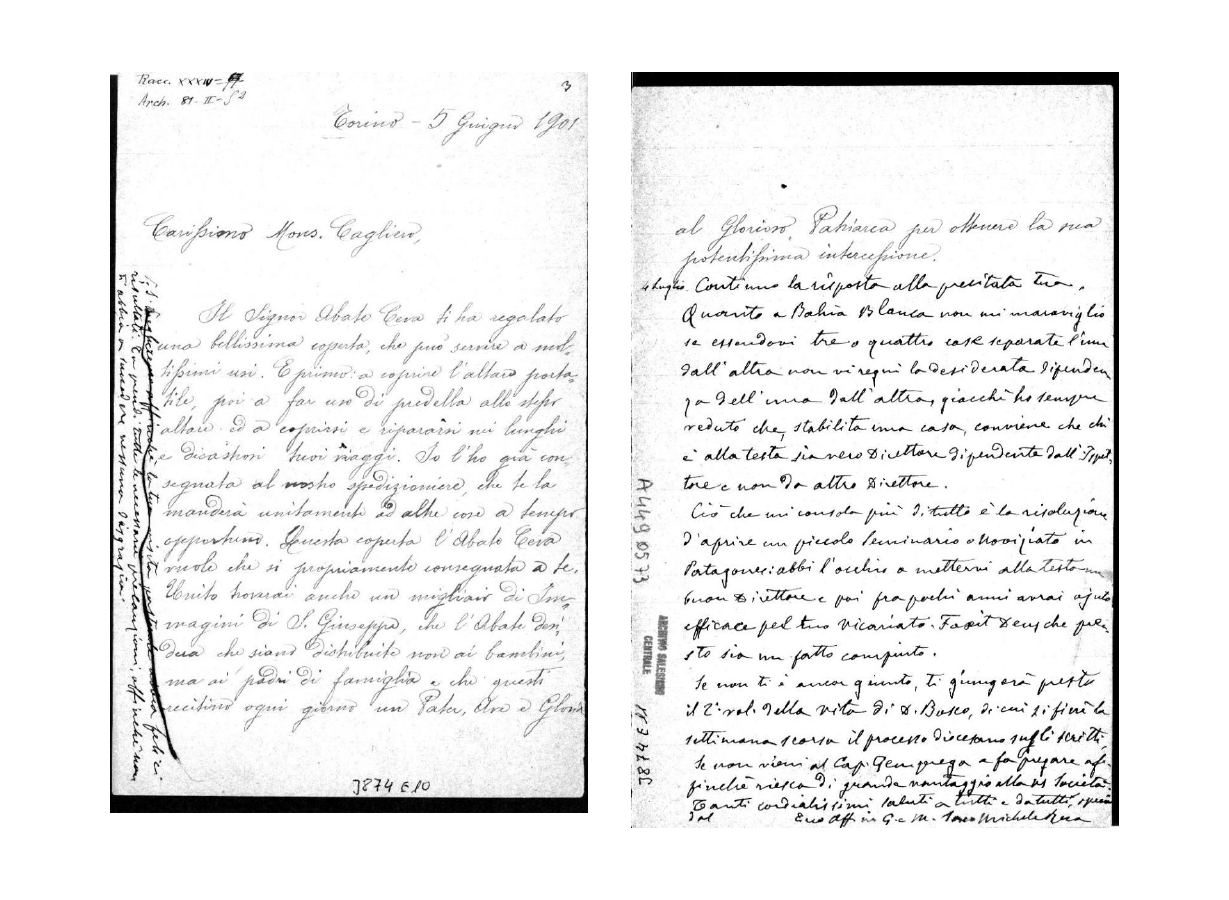 Racc. XXXIV =
Arch. 81-II-S2
3
Torino - 5 Giugno 1901
Carissimo Mons. Cagliero,
Il Signor Abate Ceva ti ha regalato
una bellissima coperta, che può servire a mol-
tissimi usi. E primo: a coprire l'altare porta-
tile, poi a far uso di predella allo stesso
altare ed a coprirsi e ripararsi nei lunghi
e disastrosi tuoi viaggi. Io l'ho già con-
segnata al nostro spedizioniere, che te la
manderà unitamente ad altre cose a tempo
opportuno. Questa coperta l'Abate Ceva
vuole che si propriamente consegnata a te.
Unito troverai anche un migliaio di Im-
magini di S. Giuseppe, che l'Abate desi-
dera che siano distribuite non ai bambini,
ma ai padri di famiglia e che questi
recitino ogni giorno un Pater, Ave e Gloria
felici
risultati. Tu prendi tutte le necessarie precauzioni, affinchè non
ti abbia a succedere nessuna disgrazia.
J874 E10
al Glorioso Patriarca per ottenere la sua
potentissima intercessione.
4 Luglio. Continuo la risposta alla pregiata tua.
Quanto a Bahia Blanca non mi maraviglio
se essendovi tre o quattro case separate l'una
dall'altra non vi regni la desiderata dipenden
za dell'una dall'altra, giacchè ho sempre
veduto che, stabilita una casa, conviene che chi
è alla testa sia vero Direttore dipendente dall'Ispet-
tore e non da altro Direttore.
Ciò che mi consola più di tutto è la risoluzione
d'aprire un piccolo Seminario o Noviziato in
Patagones: abbi l'occhio a mettervi alla testa un
buon Direttore e poi fra pochi anni avrai ajuto
efficace pel tuo vicariato. Faxit Deus che pre-
sto sia un fatto compiuto.
Se non ti è ancor giunto, ti giungerà presto
il 2º vol. della vita di D. Bosco, di cui si finì la
settimana scorsa il processo diocesano sugli scritti.
Se non vieni al Cap. Gen. prega e fa pregare af-
finchè riesca di grande vantaggio alla Società.
Tanti cordialissimi saluti a tutti e da tutti, specie
dal Tuo Aff in G. e M. Sac. Michele Rua
A449 0573
ARCHIVIO SALESIANO
CENTRALE